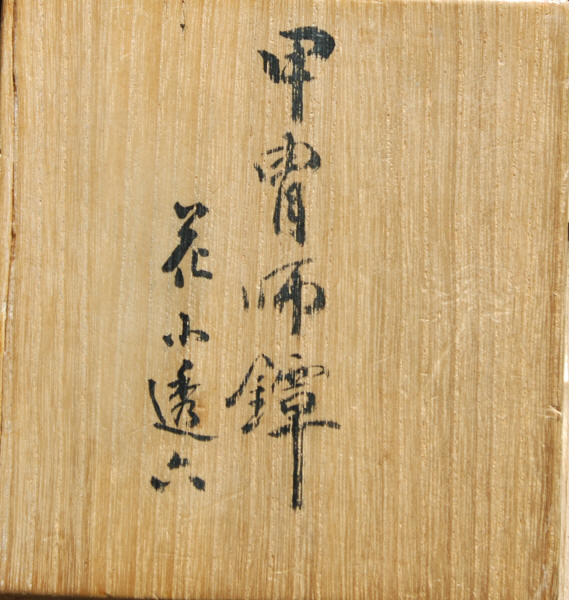 甲冑師鐔
花小透六